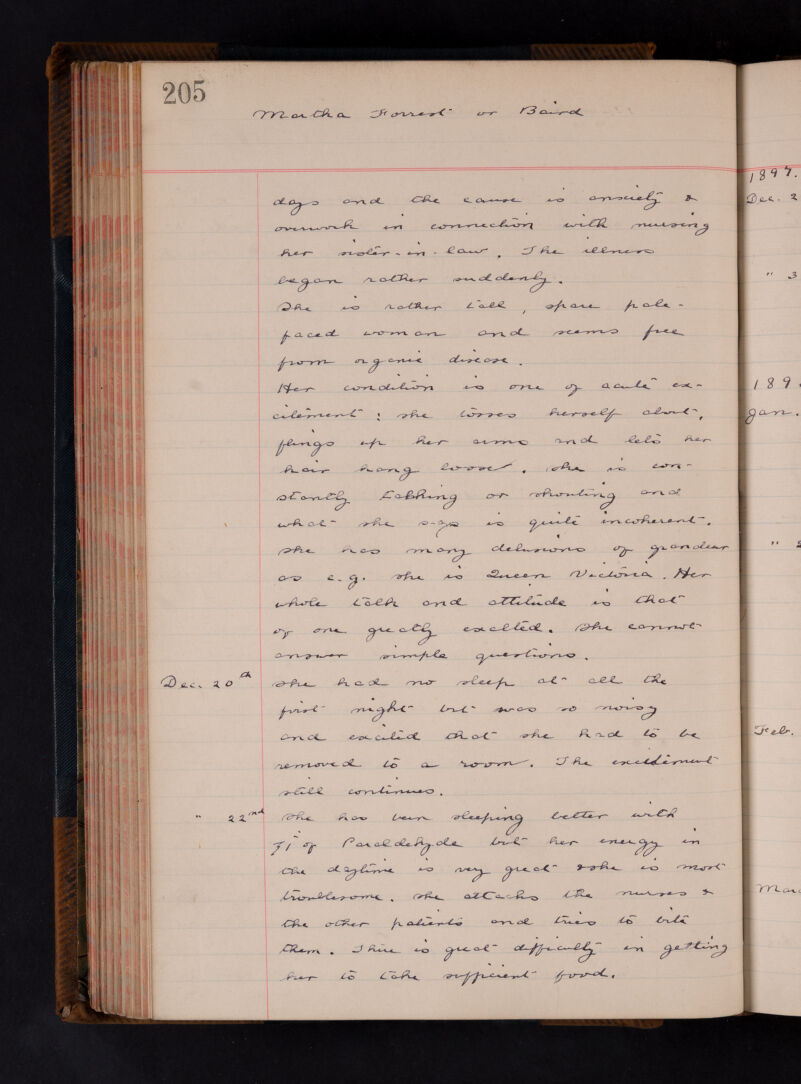 205
Martha Forrest or Baird
days and the cause is anxiety &
overwork in connection with nursing
her sister-in-law. The illness
began rather suddenly.
She is rather tall, spare pale-
faced woman and seems free
from organic disease.
Her condition is one of acute ex-
citement: she tosses herself about,
flings up her arms and lets her
hair hang loose. She is con-
stantly talking or shouting and
what she says is quite incoherent.
She has many delusions of grandeur
as e.g. she is Queen Victoria. Her
whole talk and attitude is that
of one greatly exalted. She cannot
answer simple questions.
Dec. 20th She had no sleep at all the
first night but was so noisy
and excited that she had to be
removed to a room. The excitement
still continues.
" 22nd She has been sleeping better with
ʒi of Paraldehyde but her energy in
the daytime is very great & she is most
troublesome. She attacks the nurses &
the other patients and tries to bite
them. There is great difficulty in getting
her to take sufficient food.
1897.
Dec. 2
" 3
189
Jan.
" 2
Feb.
Mar